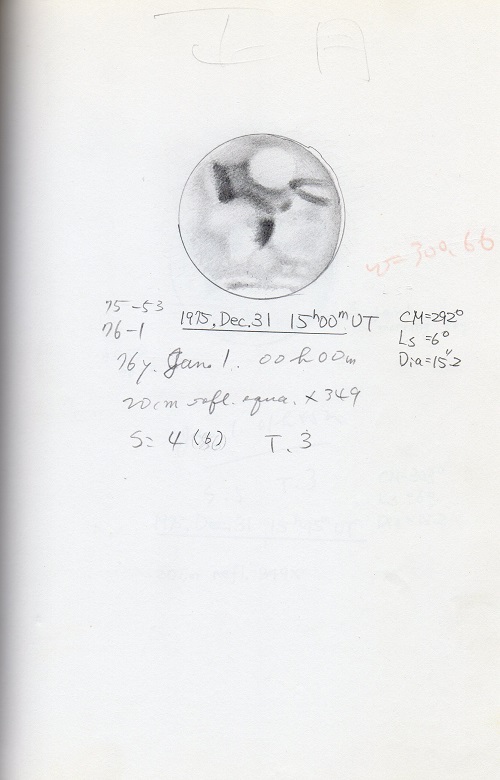 正月
ω=300.66
75-53
76-1
1975, Dec. 31 15ʰ00ᵐ UT
CM=292°
Ls=6°
Dia=15″2
76y. Jan. 1. 00h00m
20cm refl. equa. ×349
S= 4 (6) T. 3